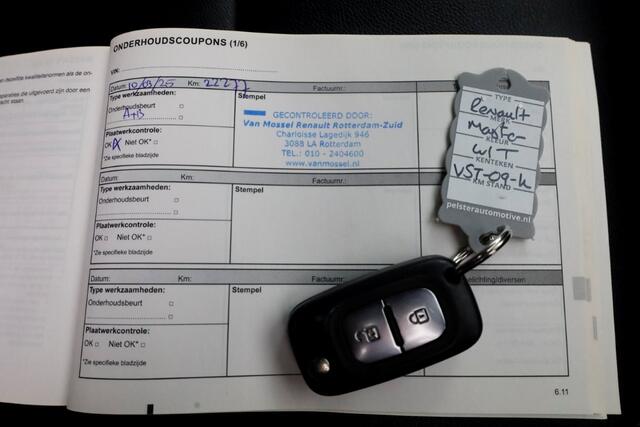 ONDERHOUDSCOUPONS (1/6)
VIN:
Datum: 10/03/25 Km: 22277 Factuurnr.:
Type werkzaamheden:
Onderhoudsbeurt
A+B
Plaatwerkcontrole:
OK X Niet OK*
*Zie specifieke bladzijde
Stempel
GECONTROLEERD DOOR:
Van Mossel Renault Rotterdam-Zuid
Charloisse Lagedijk 946
3088 LA Rotterdam
TEL.: 010 - 2404600
www.vanmossel.nl
Datum: Km: Factuurnr.:
Type werkzaamheden:
Onderhoudsbeurt
Plaatwerkcontrole:
OK Niet OK*
*Zie specifieke bladzijde
Stempel
Datum: Km: Factuurnr.: elichting/diversen
Type werkzaamheden:
Onderhoudsbeurt
Plaatwerkcontrole:
OK Niet OK*
*Zie specifieke bladzijde
Stempel
6.11
TYPE
Renault
Master
KLEUR
WIT
KENTEKEN
VST-09-K
KM STAND
pelsterautomotive.nl
dezelfde kwaliteitsnormen als de on-
eparaties die uitgevoerd zijn door een